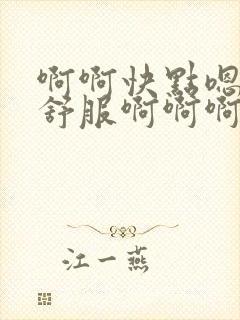 啊啊快點嗯
舒服啊啊啊
江一燕